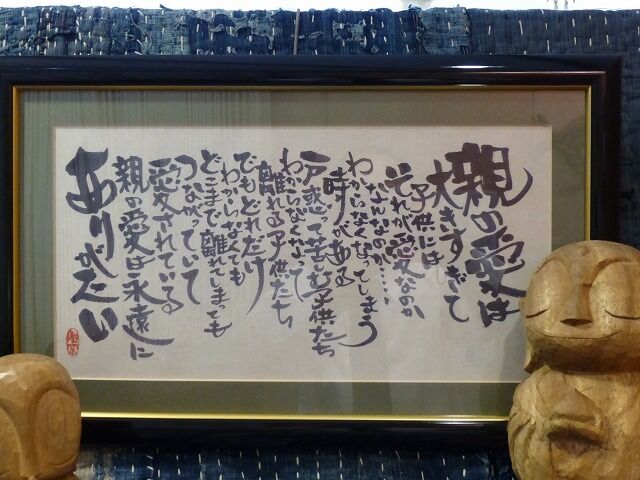 親の愛は
大きすぎて
子供には
それが愛なのか
なんなのか……
わからなくなってしまう
時がある
戸惑って苦しむ子供たち
わからなくなって
離れる子供たち
でもどれだけ
わからなくても
どこまで離れてしまっても
つながっていて
愛されている
親の愛は永遠に
ありがたい